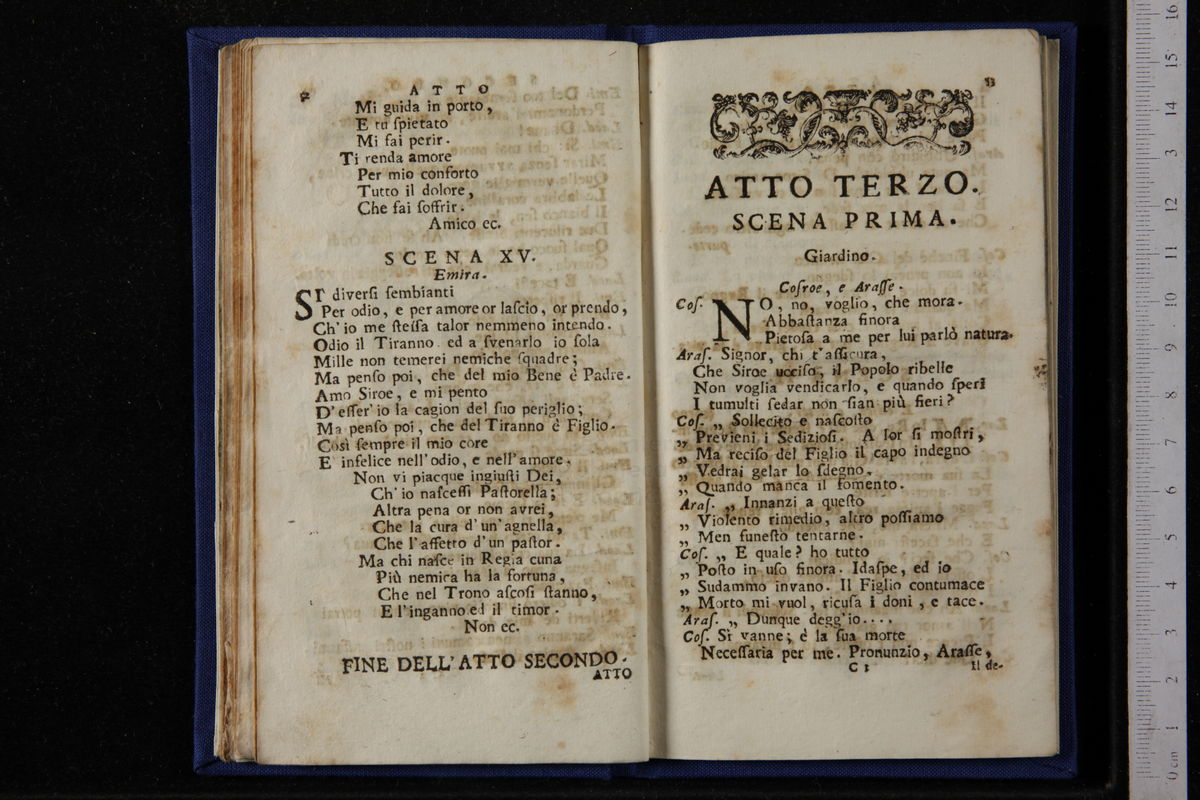 ATTO
Mi guida in porto,
E tu ſpietato
Mi fai perir.
Ti renda amore
Per mio conforto
Tutto il dolore,
Che fai ſoffrir.
Amico ec.
SCENA XV.
Emira.
SI' diverſi ſembianti
Per odio, e per amore or laſcio, or prendo,
Ch' io me ſteſſa talor nemmeno intendo.
Odio il Tiranno ed a ſvenarlo io ſola
Mille non temerei nemiche ſquadre;
Ma penſo poi, che del mio Bene è Padre.
Amo Siroe, e mi pento
D' eſſer' io la cagion del ſuo periglio;
Ma penſo poi, che del Tiranno è Figlio.
Così ſempre il mio core
E' infelice nell' odio, e nell' amore.
Non vi piacque ingiuſti Dei,
Ch' io naſceſſi Paſtorella;
Altra pena or non avrei,
Che la cura d' un' agnella,
Che l' affetto d' un paſtor.
Ma chi naſce in Regia cuna
Più nemica ha la fortuna,
Che nel Trono aſcoſi ſtanno,
E l' inganno ed il timor.
Non ec.
FINE DELL' ATTO SECONDO.
ATTO
53
ATTO TERZO.
SCENA PRIMA.
Giardino.
Coſroe, e Araſſe.
Coſ. NO, no, voglio, che mora.
Abbaſtanza finora
Pietoſa a me per lui parlò natura.
Araſ. Signor, chi t' aſſicura,
Che Siroe ucciſo, il Popolo ribelle
Non voglia vendicarlo, e quando ſperi
I tumulti ſedar non ſian più fieri?
Coſ. „ Sollecito e naſcoſto
„ Previeni i Sedizioſi. A lor ſi moſtri,
„ Ma reciſo del Figlio il capo indegno
„ Vedrai gelar lo ſdegno,
„ Quando manca il fomento.
Araſ. „ Innanzi a queſto
„ Violento rimedio, altro poſſiamo
„ Men funeſto tentarne.
Coſ. „ E quale? ho tutto
„ Poſto in uſo finora. Idaſpe, ed io
„ Sudammo invano. Il Figlio contumace
„ Morto mi vuol, ricuſa i doni, e tace.
Araſ. „ Dunque degg' io....
Coſ. Sì vanne; è la ſua morte
Neceſſaria per me. Pronunzio, Araſſe,
C 3
Il de-
0 cm 1 2 3 4 5 6 7 8 9 10 11 12 3 14 15 16